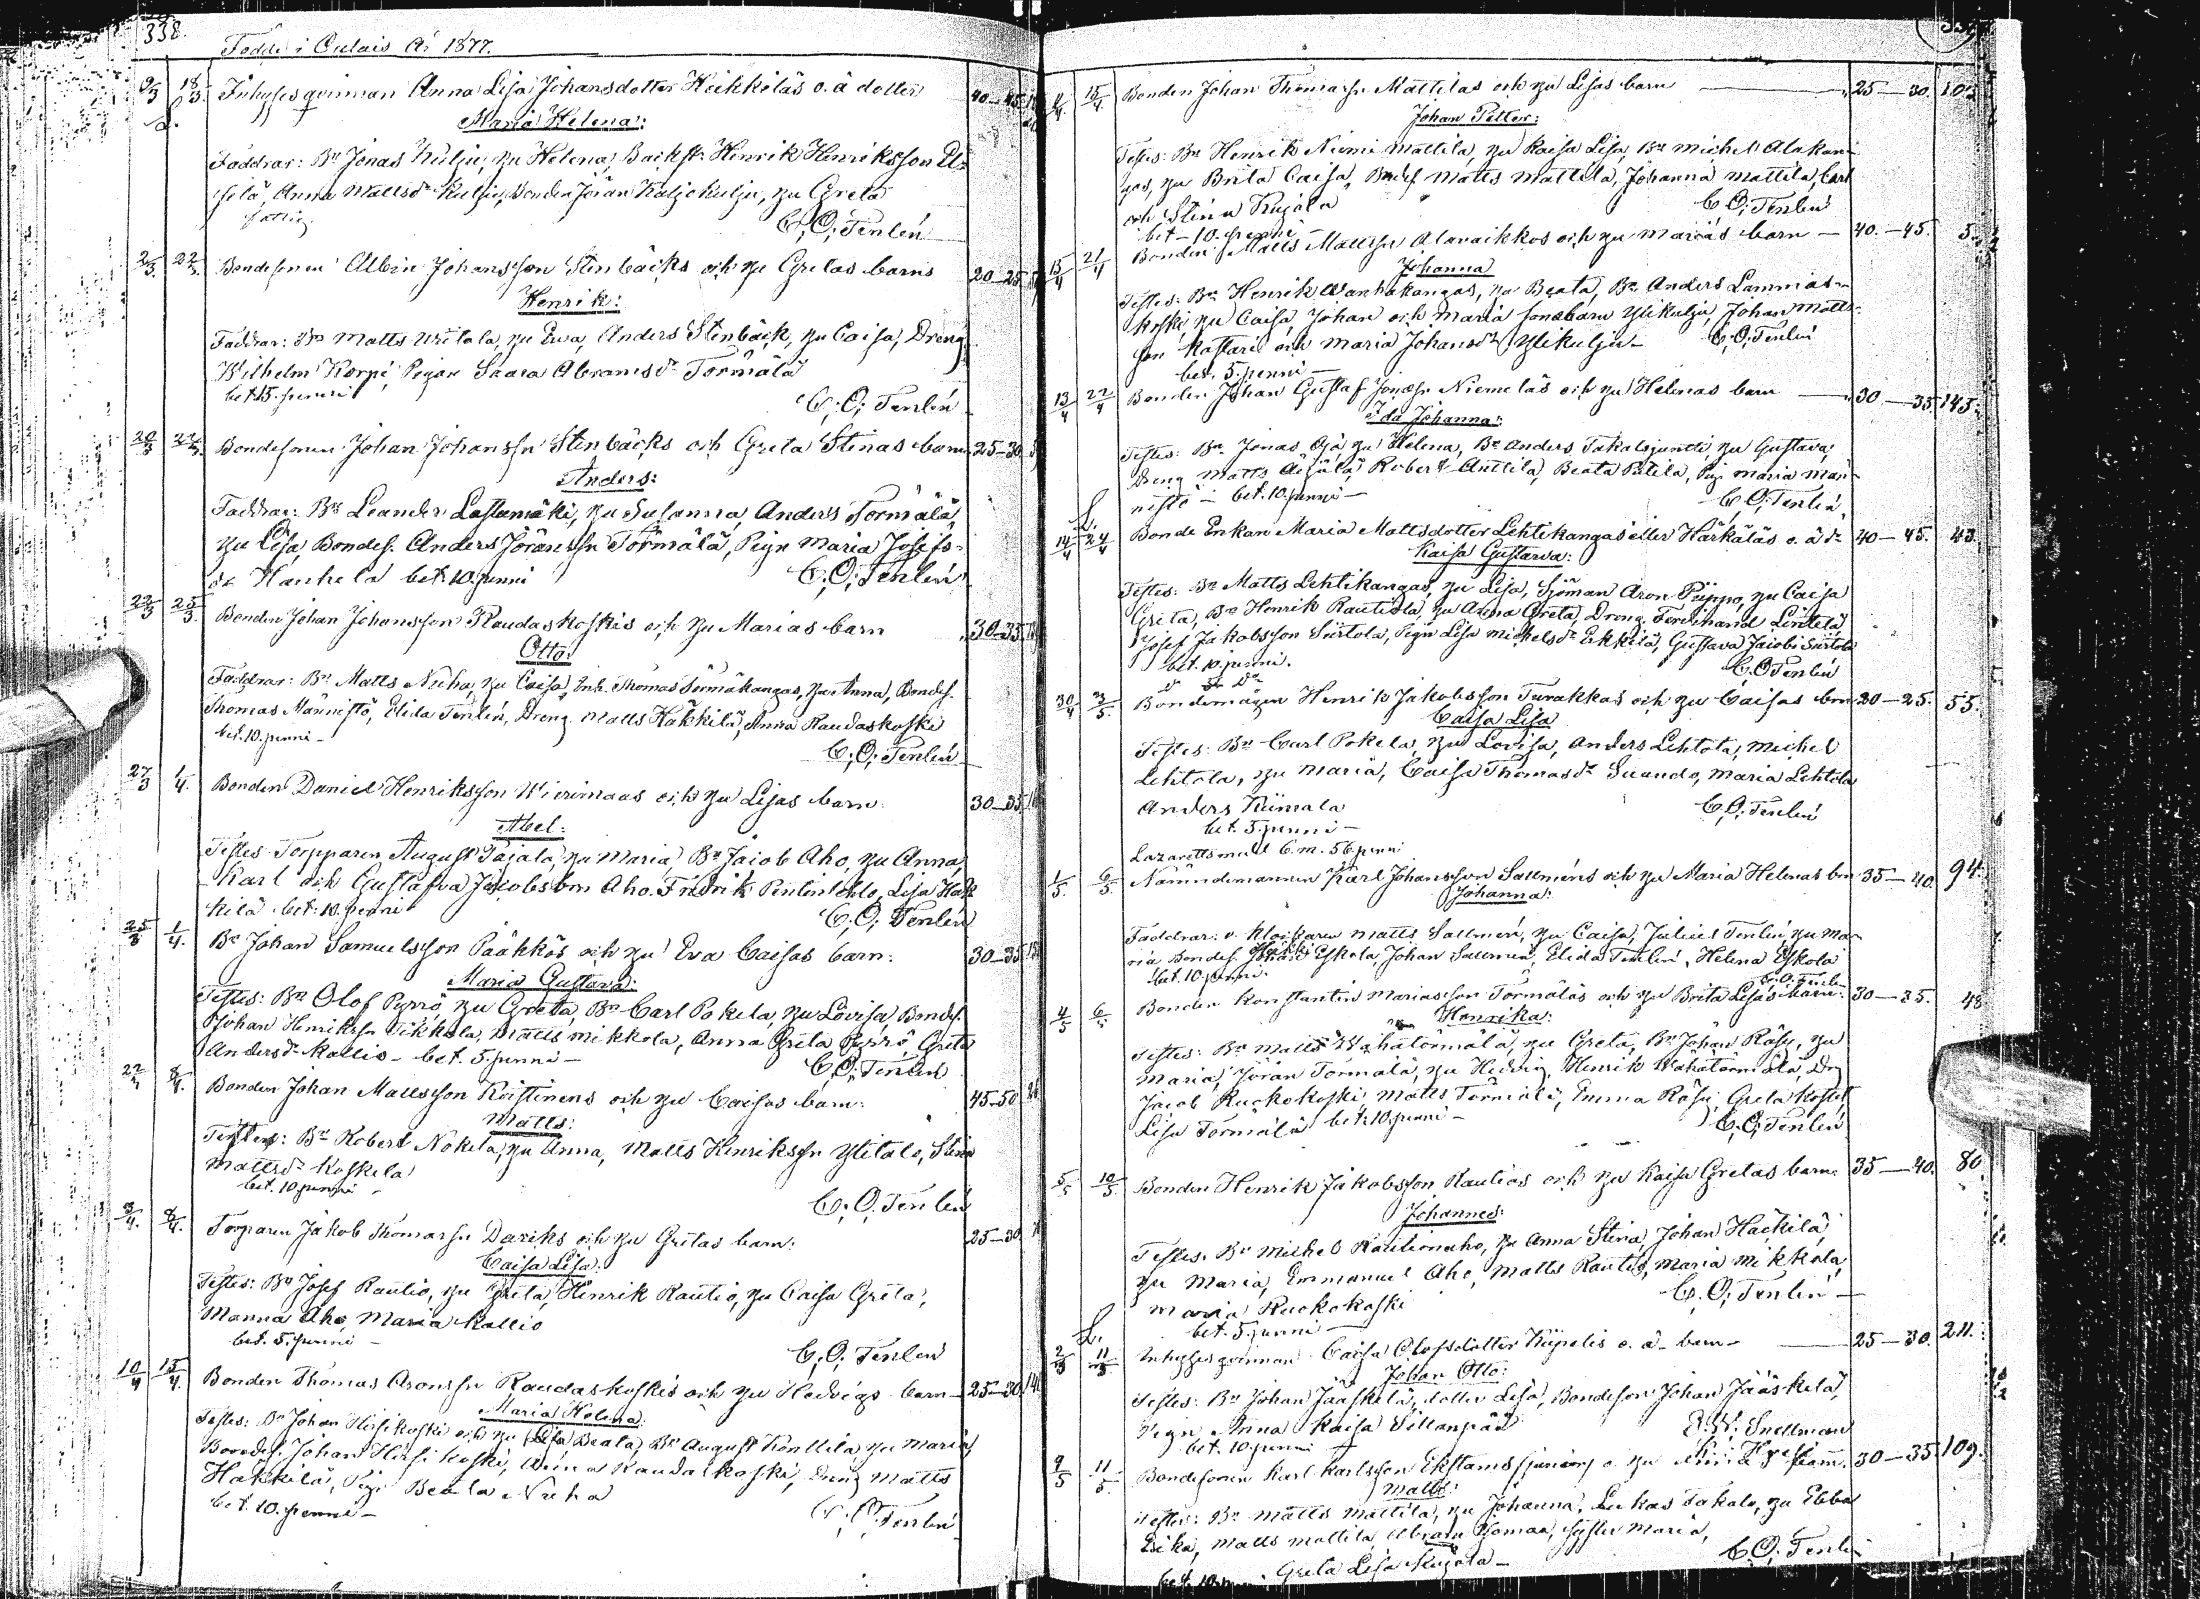 338.
Födde i Oulais År 1877.
9/3 18/3 Inhyses qvinnan Anna Lisa Johansdotter Heikkiläs o. ä dotter 40-45
Maria Helena:
Faddrar: Bn Jonas Kulju, hu Helena, Backst: Henrik Henriksson
Anna Mattsdr Kulju, Bonden Jöran Karjokulju, hu Greta
C. O; Tenlén
22/3 Bondesonen Albin Johansson Stenbäcks och hu Gretas barn 20-25
Henrik:
Faddrar: Bn Matts Uritalo, hu Ewa, Anders Stenbäck, hu Caisa, Dreng
Wilhelm Korpi, Pigan Saara Abramsdr Törmälä
bet. 15. penni
C; O; Tenlén
20/3 Bondesonen Johan Johanssn Stenbäcks och Greta Stinas barn 25-30
Anders:
Faddrar: Bn Leander Lastumäki, hu Susanna, Anders Törmälä,
hu Lisa, Bondes. Anders Jöranssn Törmälä, Pign Maria Josefs-
dr Hanhela bet. 10. penni C; O; Tenlén
22/3 25/3 Bonden Johan Johansson Raudaskoskis och hu Marias barn 30-35
Otto:
Faddrar: Bn Matts Niha, hu Caisa, Inh. Thomas Törmäkangas, hu Anna, Bondes.
Thomas Männistö, Elida Tenlén, Dreng Matts Häkkilä, Anna Raudaskoski
bet. 10. penni -
C; O; Tenlén
27/3 1/4. Bonden Daniel Henriksson Wierimaas och hu Lisas barn. 30-35
Abel:
Testes Torpparen August Pajala, hu Maria, Bn Jacob Aho, hu Anna,
Karl och Gustafva Jacobsbrn Aho. Fredrik Pentinlehto, Lisa Häk
kilä bet: 10. penni C; O; Tenlén
25/3 1/4. Bn Johan Samuelsson Pääkkös och hu Eva Caisas barn: 30-35
Maria Gustava:
Testes: Bn Olof Pyrrö, hu Greta, Bn Carl Pokela, hu Lovisa, Bondes.
Johan Henrikssn Mikkola, Matts Mikkola, Anna Greta Pyrrö, Greta
Andersdr Kallio - bet. 5. penni - C; O; Tenlén
8/4. Bonden Johan Mattsson Koistinens och hu Caisas barn: 45-50
Matts:
Testes: Bn Robert Nokela, hu Anna, Matts Henrikssn Ylitalo, Stina
Mattsdr Koskela
bet. 10 penni -
C; O. Tenlén
3/4. 8/4. Torparen Jakob Thomassn Dariks och hu Gretas barn: 25-30
Caisa Lisa:
Testes: Bn Josef Rautio, hu Greta, Henrik Rautio, hu Caisa Greta,
Manna Aho, Maria Kallio
bet. 5. penni -
C; O; Tenlén
10/4 15/4. Bonden Thomas Aronssn Raudaskoskis och hu Hedvigs barn 25-30
Maria Helena:
Testes: Bn Johan Hirsikoski och hu Beata, Bn August Kenttilä hu Maria,
Bondes. Johan Hirsikoski, Anna Raudaskoski, Dreng Matts
Häkkilä, Pign Beata Niha
bet. 10. penni -
C. O; Tenlén
15/4 Bonden Johan Thomassn Mattilas och hu Lisas barn 25-30.
Johan Petter:
Testes: Bn Henrik Niemi Mattila, hu Kaisa Lisa, Bn Michel Alakan-
gas, hu Brita Caisa, Bndes Matts Mattila, Johanna Mattila, Carl
och Stina Kujala C O; Tenlén
bet - 10. penni -
15/4 21/4 Bonden Matts Mattssn Alavaikkos och hu Marias barn - 40.-45. 5.
Johanna
Testes: Bn Henrik Wanhakangas, hu Beata, Bn Anders Lammas-
koski, hu Caisa, Johan och Maria Jonæbarn Ylikulju, Johan Matts-
son Kastari och Maria Johansdr Ylikulju - C; O; Tenlén
bet. 5. penni -
13/4 22/4 Bonden Johan Gustaf Jonæsn Niemeläs och hu Helenas barn - 30-35 145.
Ida Johanna:
Testes: Bn Jonas Ojä hu Helena, Bn Anders Takalojuntti, hu Gustava,
Dreng Matts Äijälä, Robert Anttila, Beata Patila, Pig Maria Män-
nistö - bet. 10. penni - C. O; Tenlén
14/4 24/4 Bonde Enkan Maria Mattsdotter Lehtikangas eller Härkäläs o. ä dr 40-45. 43.
Kaisa Gustava:
Testes: Bn Matts Lehtikangas, hu Lisa, Sjöman Aron Piippo, hu Caisa
Greta, Bn Henrik Rautiola, hu Anna Greta, Dreng. Ferdinand Lintelä
Josef Jakobsson Siirtola, Pign Lisa Michelsdr Erkkilä, Gustava Jacobs Siirtola
bet. 10. penni.
C. O Tenlén
30/4 3/5. Bondemågen Henrik Jakobsson Turakkas och hu Caisas brn 20-25. 55.
Caisa Lisa
Testes: Bn Carl Pokela, hu Lovisa, Anders Lehtola, Michel
Lehtola, hu Maria, Caisa Thomasdr Suando, Maria Lehtola
Anders Kiimala C; O; Tenlén
bet. 5. penni -
Lazarettsmedel 6. m. 56 penni
1/5. 6/5. Nämndemannen Karl Johansson Sallméns och hu Maria Helenas brn 35-40. 94.
Johanna:
Faddrar: v. Klockaren Matts Sallmén, hu Caisa, Julius Tenlén, hu Ma-
ria Bondes. Eskola, Johan Sallmén, Elida Tenlén, Helena Eskola
bet. 10 penni.
C. O. Tenlén
4/5 6/5 Bonden Konstantin Mariasson Törmäläs och hu Brita Lisas barn: 30-35. 48
Henrika:
Testes: Bn Matts Wähätörmälä, hu Greta, Bn Johan Räsy, hu
Maria, Jöran Törmälä, hu Hedvig, Henrik Wähätörmälä, Drg
Jacob Ruokokoski, Matts Törmälä, Emma Räsy, Greta
Lisa Törmälä bet: 10. penni - C; O; Tenlén
5/5 10/5 Bonden Henrik Jakobsson Rautios och hu Kaisa Gretas barn 35-40. 80
Johannes:
Testes. Bn Michel Rautionaho, hu Anna Stina, Johan Häckilä,
hu Maria, Emmanuel Aho, Matts Rautio, Maria Mikkola,
Maria Ruokokoski C. O; Tenlén -
bet. 5. penni -
Inhyses qvinnan Caisa Olofsdotter Kiipelis o. ä - barn - 25-30. 211.
Johan Otto:
Testes: Bn Johan Jääskelä, dotter Lisa, Bondeson Johan Jääskelä,
Pign Anna Kaisa Sillanpää Snellman
bet. 10 penni
9/5 11/5. Bondesonen Karl Karlsson Ekstams (junior) o hu 30-35. 109.
Matts:
Testes: Bn Matts Mattila, hu Johanna, Lukas Takalo, hu Ebba
Erika, Matts Mattila, Abram syster Maria,
Greta Lisa Kujala - C. O; Tenlén